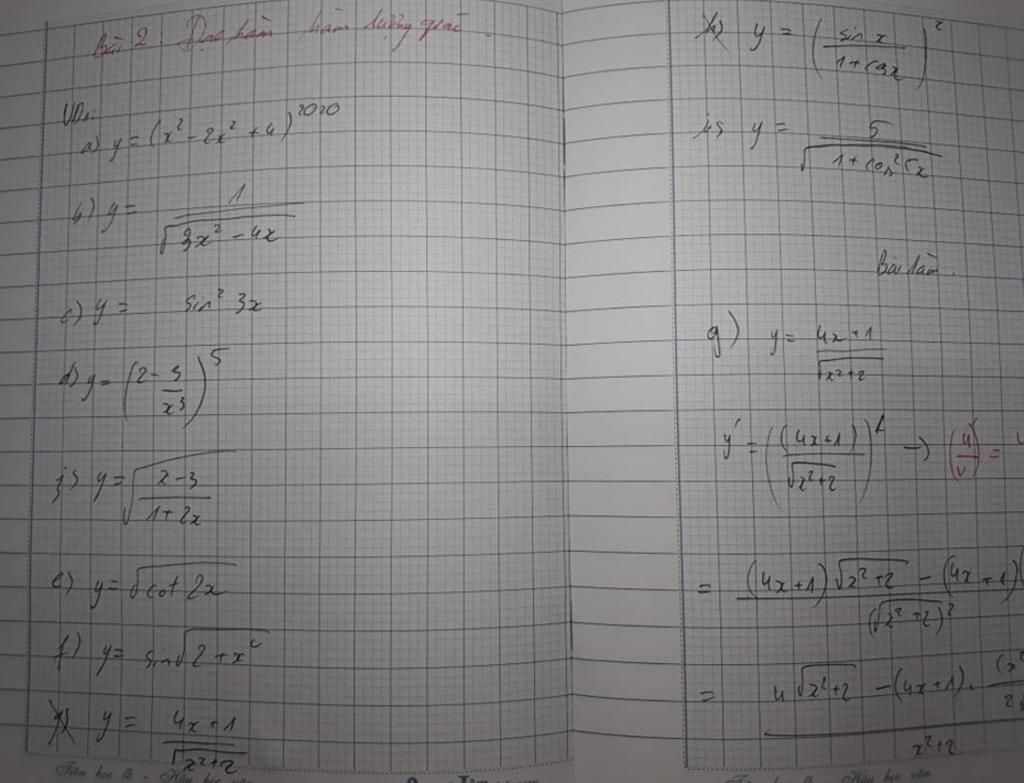 Bài 2: Đạo hàm hàm lượng giác.
VD1:
a) y = (x² - 2x² + 4)²⁰²⁰
b) y = 1/√(3x² - 4x)
c) y = sin² 3x
d) y = (2 - 3/x³)⁵
j) y = √((x-3)/(1+2x))
e) y = √(cot 2x)
f) y = sin√(2 + x²)
y = (4x+1)/√(x²+2)
y = (sin x/(1+cos x))²
y = 5/√(1+cos² 5x)
Bài làm.
g) y = (4x+1)/√(x²+2)
y' = ((4x+1)/√(x²+2))' → (u/v)' =
= ((4x+1)√(x²+2) - (4x+1)(/(√(x²+2))²
= 4√(x²+2) - (4x+1).(x²/2/x²+2